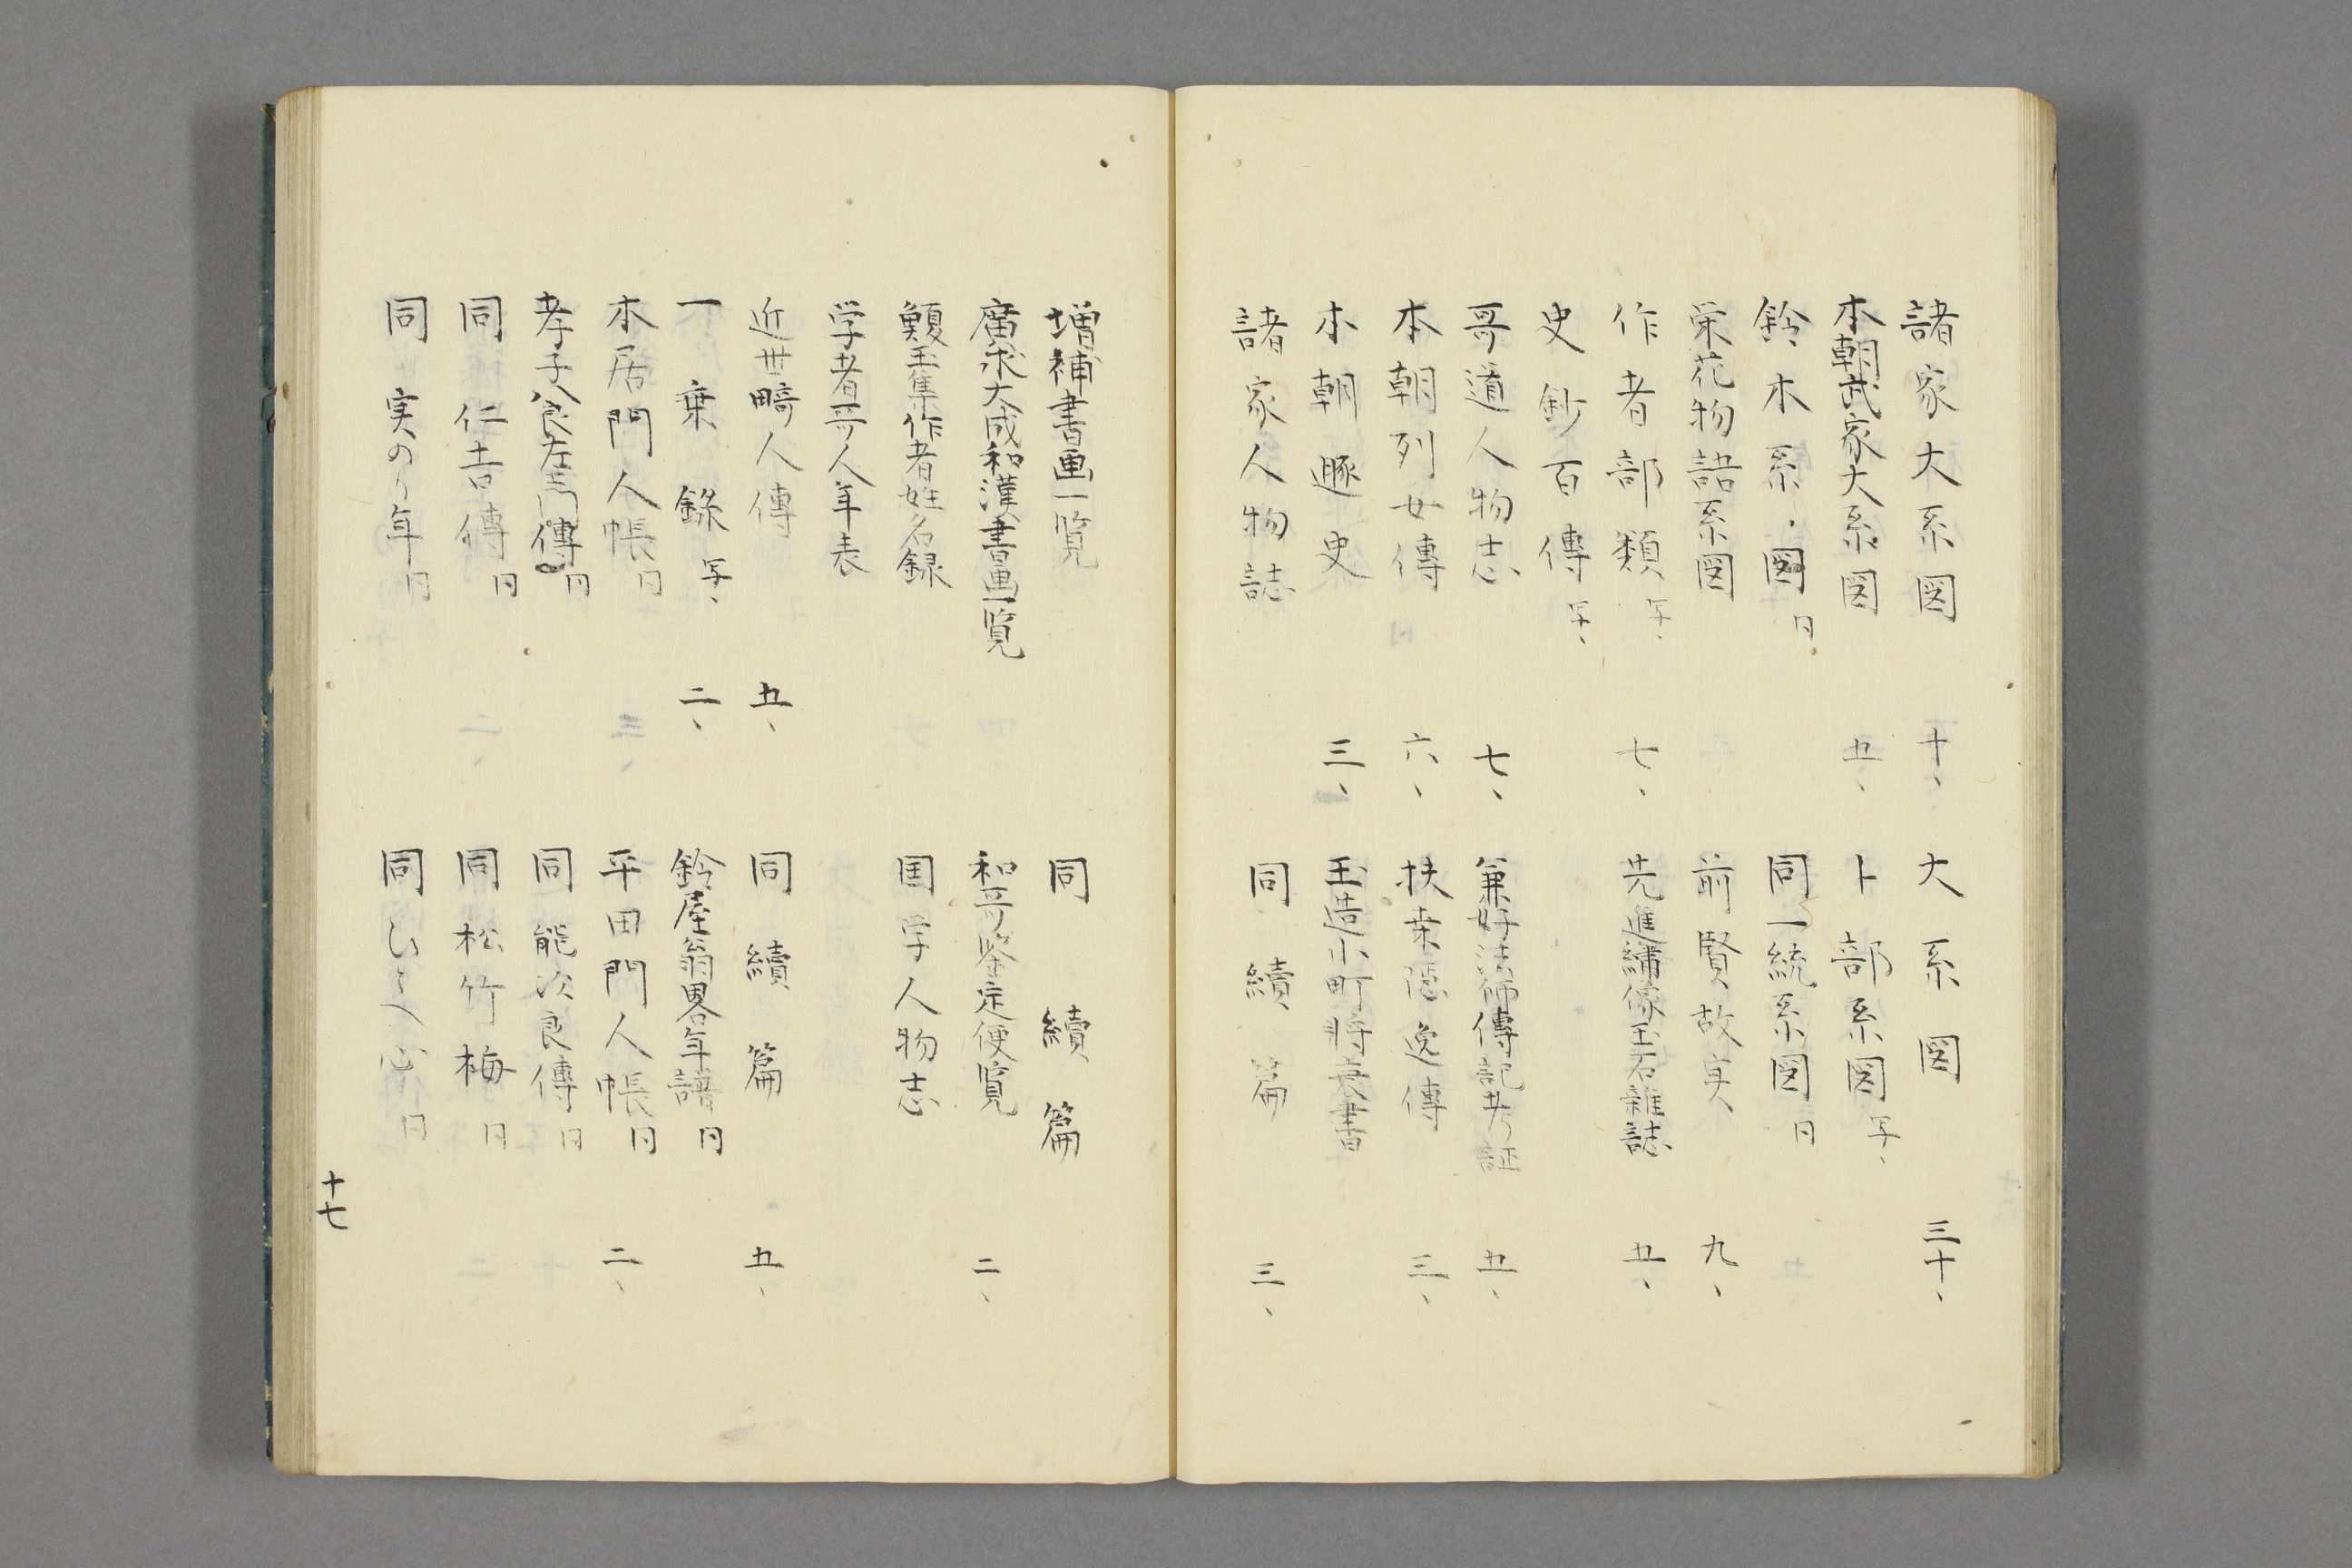 諸家大系図 十、 大系図 三十、
本朝武家大系図 五、 卜部系図 写、
鈴木系図 冂 同一統系図 冂
栄花物語系図 前賢故実 九、
作者部類 写、 七、 先進繍像玉石雑誌 五、
史鈔百傳 写、
哥道人物志 七、 兼好法師傳記考証 五、
本朝列女傳 六、 扶桑隠逸傳 三、
本朝遯史 三、 玉造小町将衰書
諸家人物誌 同續篇 三、
増補書画一覧 同續篇
廣求大成和漢書畫一覧 和哥鑒定便覧 二、
鰒玉集作者姓名録 国学人物志
学者哥人年表
近世畸人傳 五、 同續篇 五、
一乗録 写、 二、 鈴屋翁畧年譜 冂
本居門人帳 冂 平田門人帳 冂 二、
孝子八良左衛門傳 冂 同能次良傳 冂
同仁吉傳 冂 同松竹梅 冂
同実のり年 冂 同ひと心 冂
十七